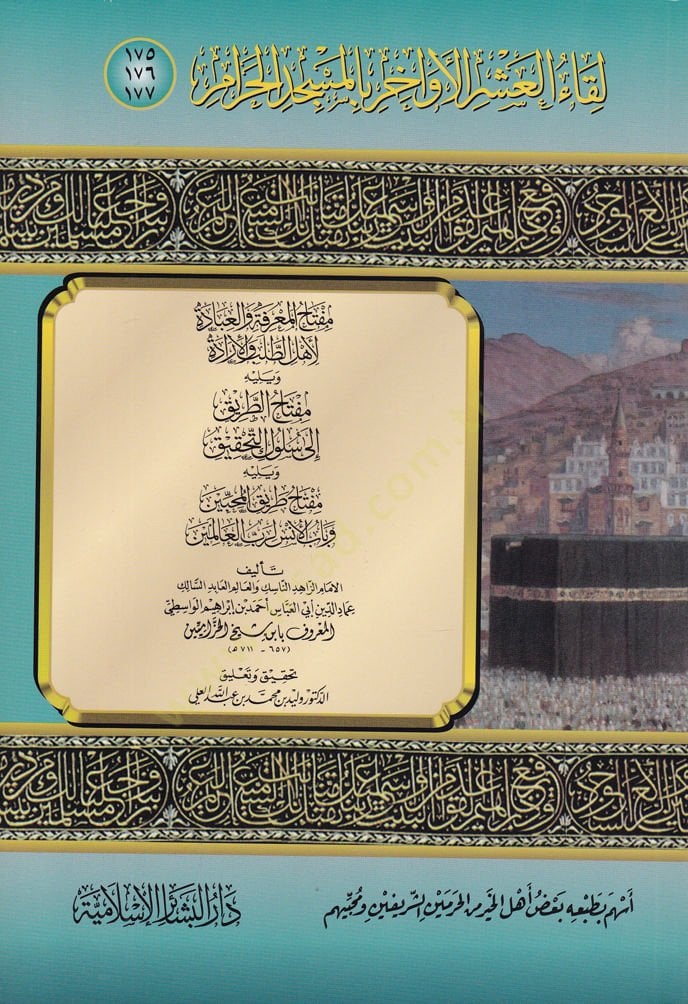 لِقَاءُ العَشْرِ الأَوَاخِرِ بِالمَسْجِدِ الحَرَامِ
١٧٥
١٧٦
١٧٧
مِفْتَاحُ المَعْرِفَةِ وَالعِبَادَةِ
لِأَهْلِ الطَّلَبِ وَالإِرَادَةِ
وَيَلِيْهِ
مِفْتَاحُ الطَّرِيْقِ
إِلَى سُلُوكِ التَّحْقِيْقِ
وَيَلِيْهِ
مِفْتَاحُ طَرِيْقِ المُحِبِّيْنَ
وَبَابُ الأُنْسِ لِرَبِّ العَالَمِيْنَ
تَأليف
الإمَام الزَّاهِدِ النَّاسِكِ وَالعَالِمِ العَابِدِ السَّالِكِ
عِمَادِ الدِّيْنِ أَبِي العَبَّاسِ أَحْمَدَ بْنِ إِبْرَاهِيْمَ الوَاسِطِيّ
المَعْرُوفِ بِابْنِ شَيْخِ الحَزَّامِيِّيْنَ
(٦٥٧ - ٧١١ هـ)
تحقيق وتعليق
الدكتور وليد بن محمد بن عبد الله العلي
أَسْهَمَ بِطَبْعِهِ بَعْضُ أَهْلِ الخَيْرِ مِنَ الحَرَمَيْنِ الشَّرِيْفَيْنِ وَمُحِبِّيْهِمْ
دَارُ البَشَائِرِ الإِسْلَامِيَّة